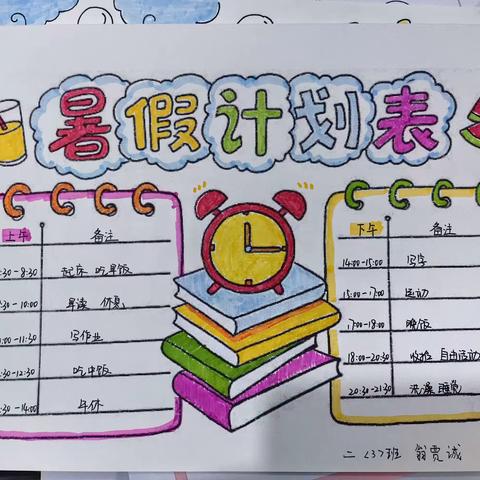 暑假计划表
上午 备注
:30-8:30 起床 吃早饭
:30-10:00 早读 休息
:00-11:30 写作业
:30-12:30 吃中饭
:30-14:00 午休
下午 备注
14:00-15:00 写字
15:00-17:00 运动
17:00-18:00 晚饭
18:00-20:30 自由活动
20:30-21:30 洗澡 睡觉
二〈3〉班 翁贾诚